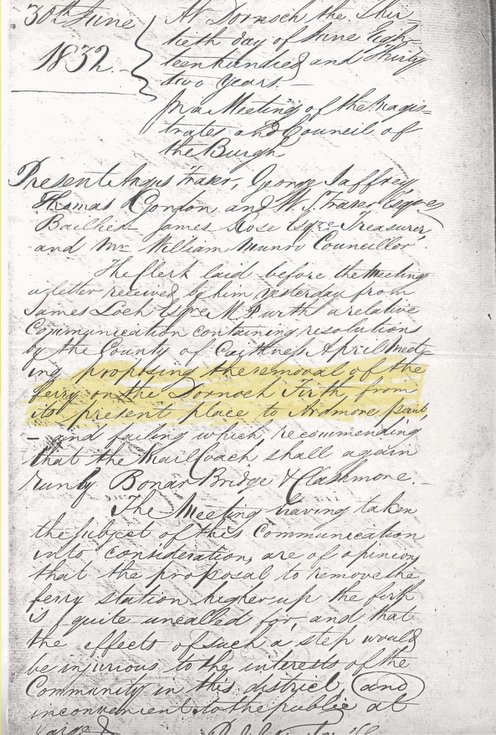 30th June
1832
At Dornoch the Thir-
tieth day of June Eigh-
teen hundred and Thirty
two years. —
In a Meeting of the Magis-
trates and Council of
the Burgh
Present Angus Fraser, George Jaffrey,
Thomas Gordon and Wm Fraser Esqres
Baillies James Rose Esqre Treasurer
and Mr William Munro Councillor
The Clerk laid before the Meeting
a letter received by him yesterday from
James Loch Esqre M.P. with a relative
Communication containing resolution
by the County of Caithness April meet-
ing proposing the removal of the
ferry on the Dornoch Firth, from
its present place to Ardmore point
— and failing which, recommending
that the Mail Coach shall again
run by Bonar Bridge & Clashmore. —
The Meeting having taken
the subject of this Communication
into consideration, are of opinion
that the proposal to remove the
ferry station higher up the firth
is quite uncalled for, and that
the effects of such a step would
be injurious to the interests of the
Community in this district (and
inconvenient to the public at
large)